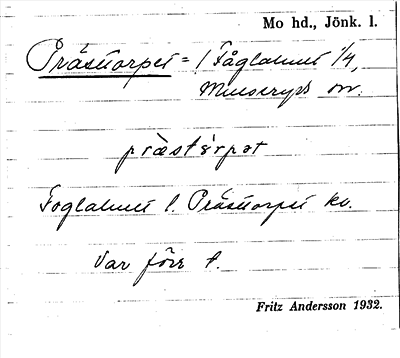 Mo hd., Jönk. l.
Prästtorpet = / Fåglalund 1/4,
Munseryds sn.
præstò̩rpət
Foglalund l. Prästtorpet kv.
Var förr t.
Fritz Andersson 1932.